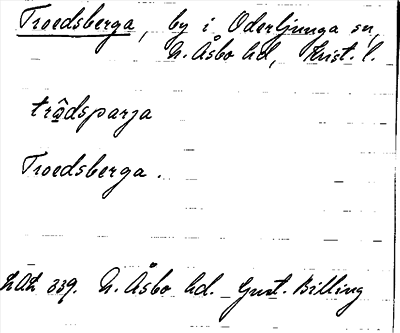 Troedsberga, by i Oderljunga sn,
N. Åsbo hd, Krist. l.
trôdsparja
Troedsberga.
LAL 339. N. Åsbo hd. Gust. Billing